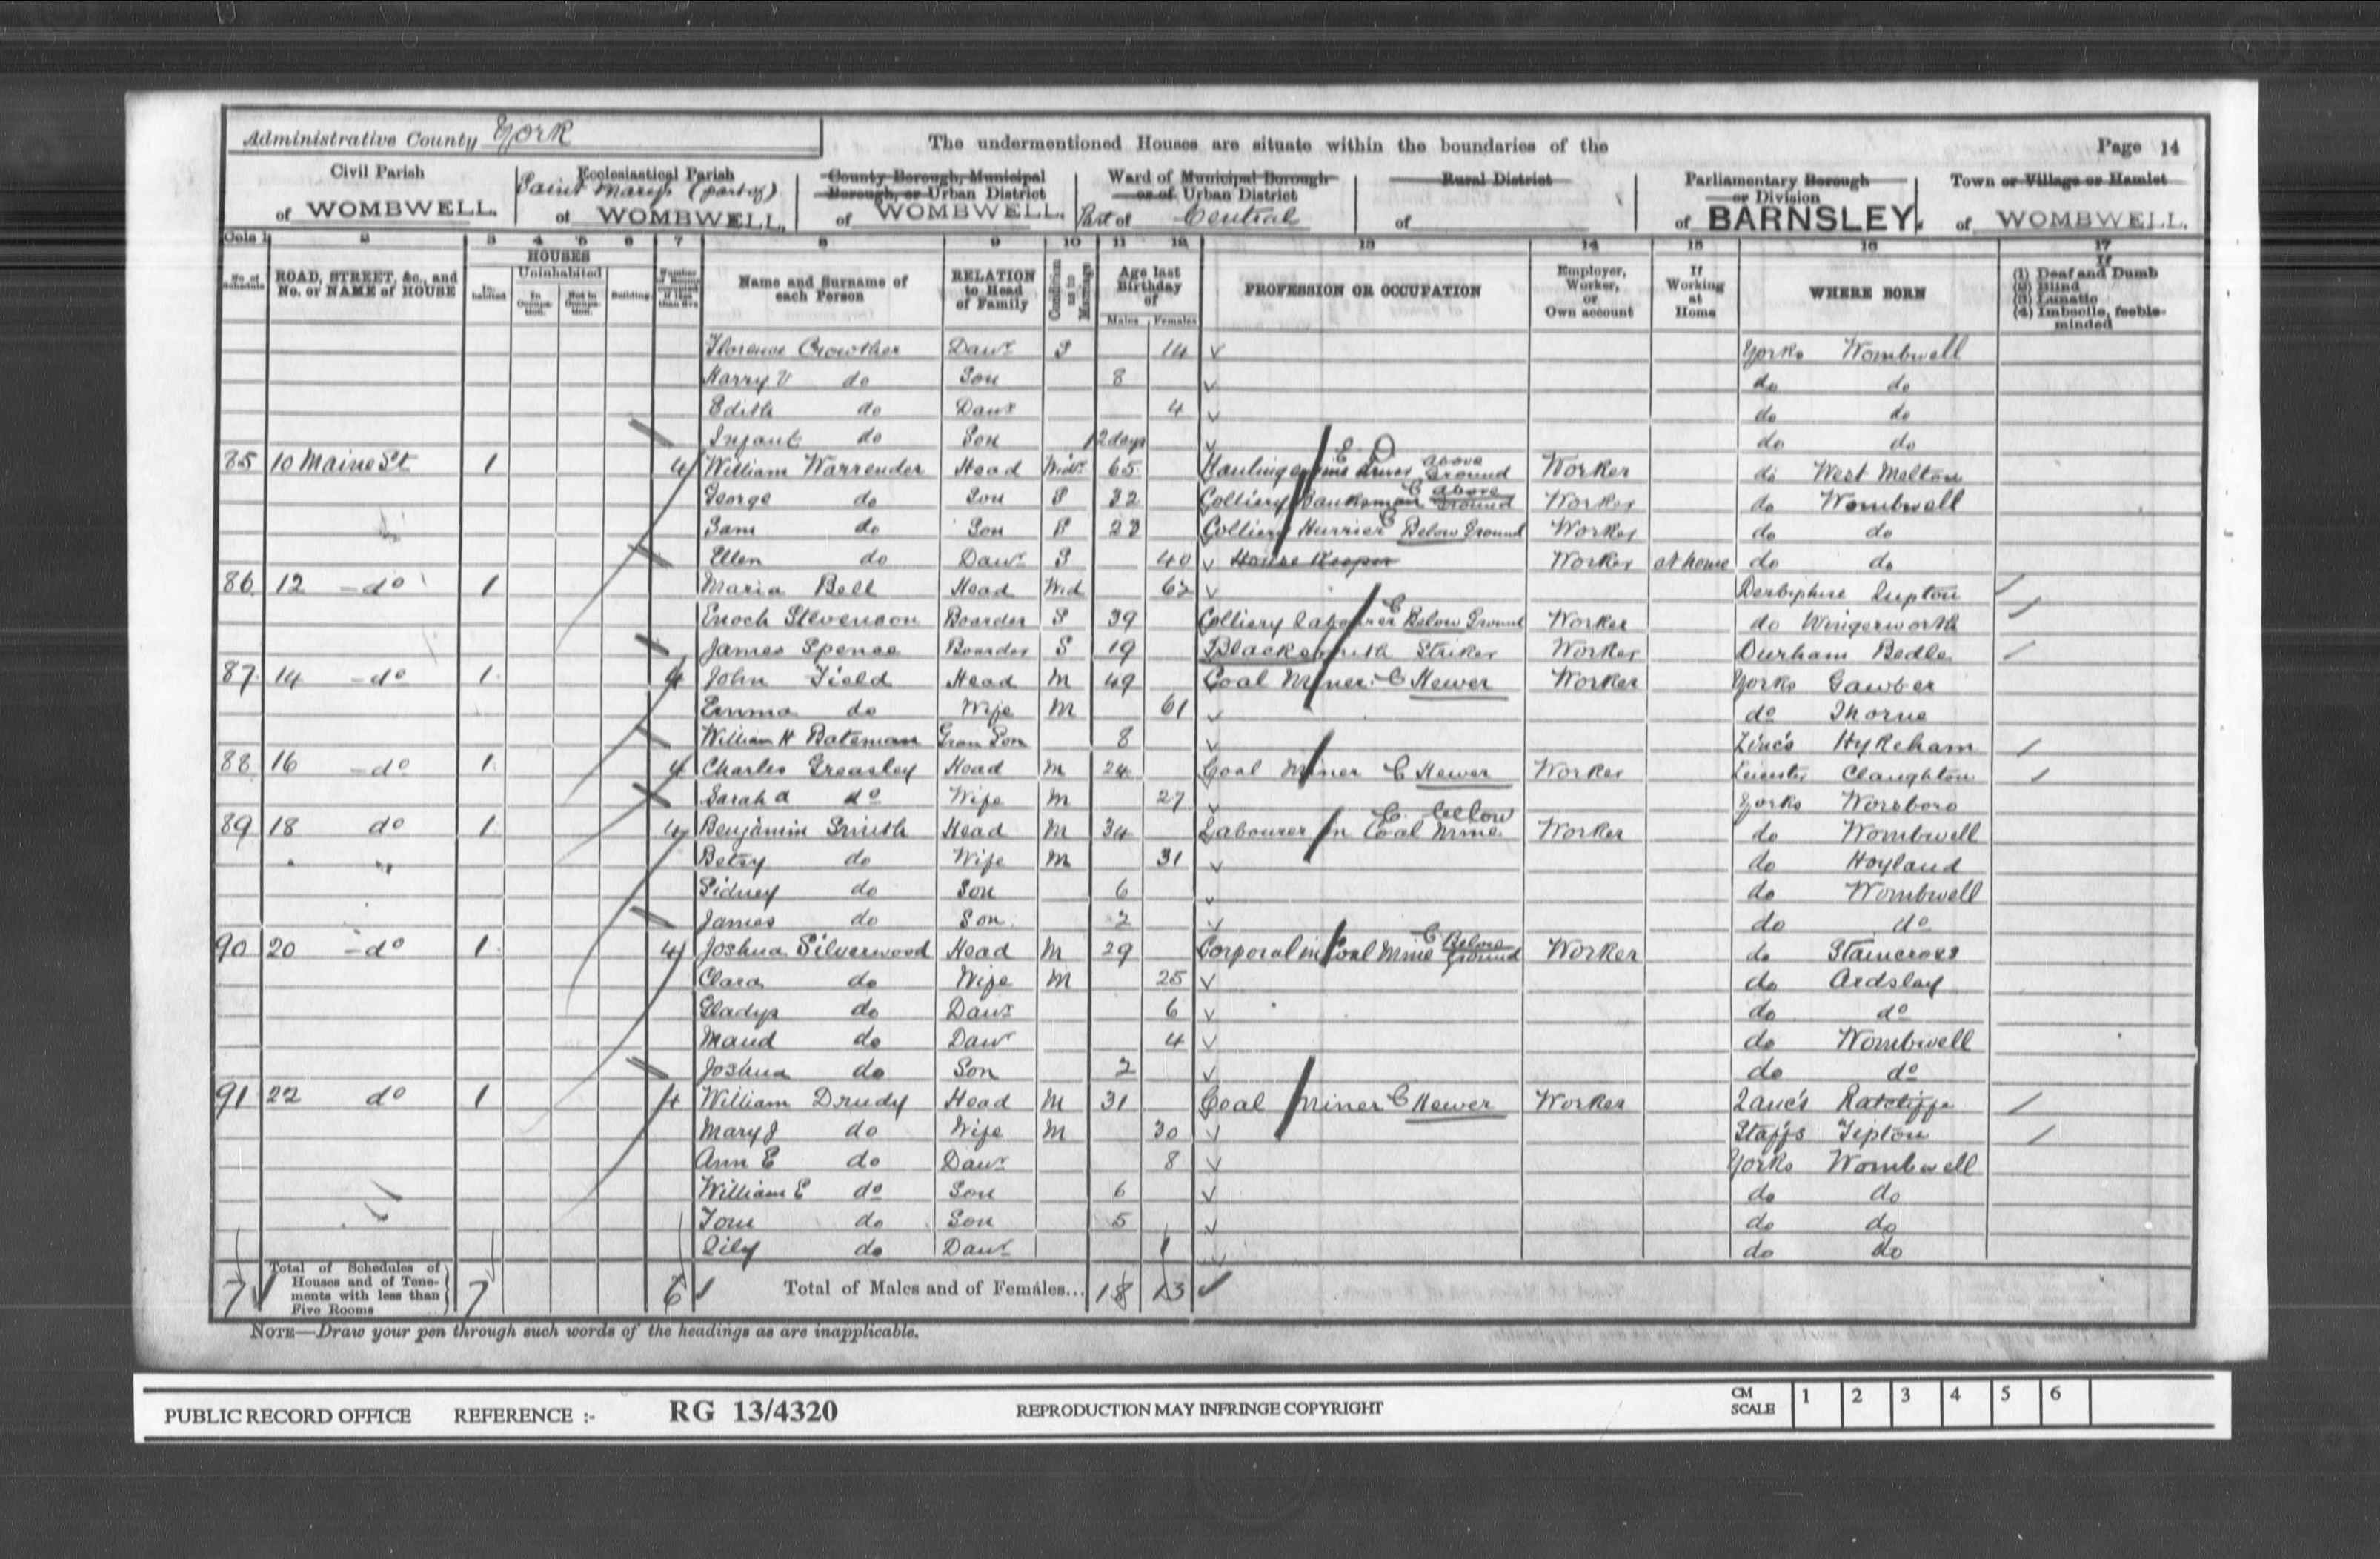 Administrative County York
The undermentioned Houses are situate within the boundaries of the
Page 14
Civil Parish of WOMBWELL.
Ecclesiastical Parish Saint Mary's (part of) of WOMBWELL.
County Borough, Municipal Borough, or Urban District of WOMBWELL.
Ward of Municipal Borough or of Urban District Part of Central
Rural District of
Parliamentary Borough or Division of BARNSLEY.
Town or Village or Hamlet of WOMBWELL.
Cols 1 2 3 4 5 6 7 8 9 10 11 12 13 14 15 16 17
No. of Schedule
ROAD, STREET, &c., and No. or NAME of HOUSE
HOUSES
Inhabited
Uninhabited
In Occupation.
Not in Occupation.
Building
Number of Rooms occupied if less than five
Name and Surname of each Person
RELATION to Head of Family
Condition as to Marriage
Age last Birthday of
Males Females
PROFESSION OR OCCUPATION
Employer, Worker, or Own account
If Working at Home
WHERE BORN
If
(1) Deaf and Dumb
(2) Blind
(3) Lunatic
(4) Imbecile, feeble-minded
Florence Crowther Daur S 14 Yorks Wombwell
Harry V do Son 8 do do
Edith do Daur 4 do do
Infant do Son 12 days do do
85 10 Maine St 1 4 William Warrender Head Widr 65 Hauling engine driver above Ground Worker do West Melton
George do Son S 32 Colliery Banksman above Ground Worker do Wombwell
Sam do Son S 23 Colliery Hurrier Below Ground Worker do do
Ellen do Daur S 40 House Keeper Worker at home do do
86 12 do 1 Maria Bell Head Wid 62 Derbyshire Lupton
Enoch Stevenson Boarder S 39 Colliery Labourer Below Ground Worker do Wingerworth
James Spence Boarder S 19 Blacksmith Striker Worker Durham Bedle
87 14 do 1 4 John Field Head M 49 Coal Miner Hewer Worker Yorks Gawber
Emma do Wife M 61 do Thorne
William H Bateman Gran Son 8 Linc's Hykeham
88 16 do 1 4 Charles Greasley Head M 24 Coal Miner Hewer Worker Leicester Claughton
Sarah A do Wife M 27 Yorks Worsboro
89 18 do 1 4 Benjamin Smith Head M 34 Labourer in Coal Mine below Worker do Wombwell
Betsy do Wife M 31 do Hoyland
Sidney do Son 6 do Wombwell
James do Son 2 do do
90 20 do 1 4 Joshua Silverwood Head M 29 Corporal in Coal Mine Below Ground Worker do Staincross
Clara do Wife M 25 do Ardsley
Gladys do Daur 6 do do
Maud do Daur 4 do Wombwell
Joshua do Son 2 do do
91 22 do 1 4 William Drudy Head M 31 Coal Miner Hewer Worker Lanc's Ratcliffe
Mary J do Wife M 30 Staffs Tipton
Ann E do Daur 8 Yorks Wombwell
William E do Son 6 do do
Tom do Son 5 do do
Lily do Daur 1 do do
7 Total of Schedules of Houses and of Tenements with less than Five Rooms 7 6 Total of Males and of Females... 18 13
NOTE—Draw your pen through such words of the headings as are inapplicable.
PUBLIC RECORD OFFICE REFERENCE :- RG 13/4320 REPRODUCTION MAY INFRINGE COPYRIGHT CM SCALE 1 2 3 4 5 6